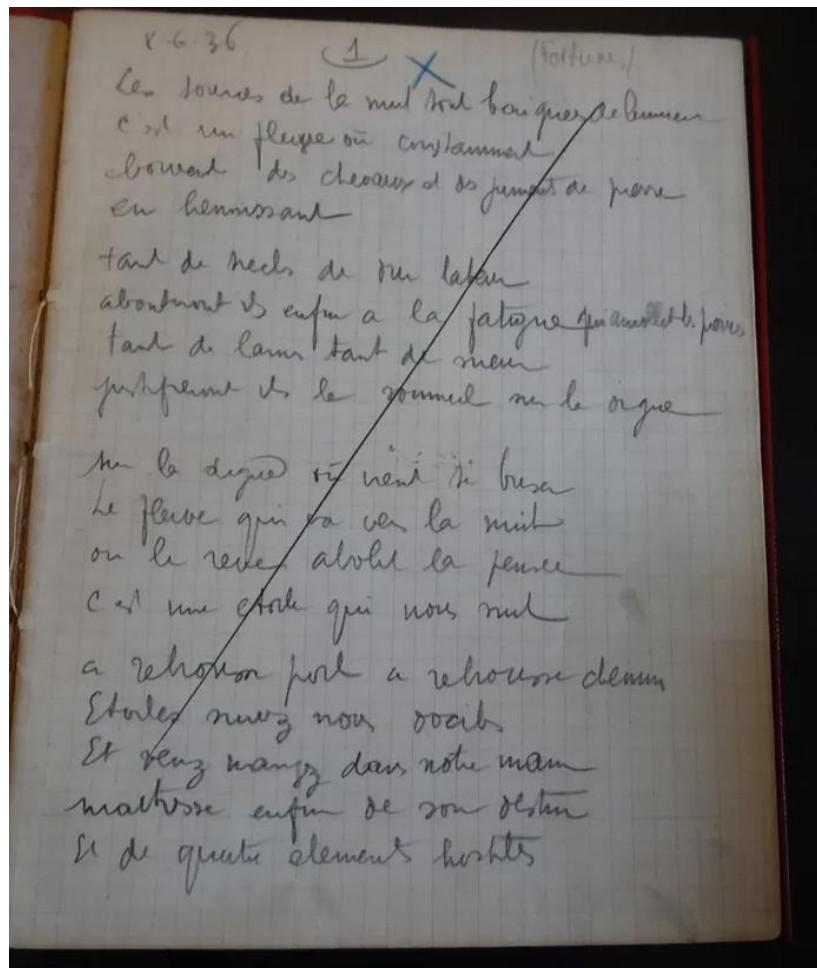 8-6-36 1 X (Fortunes)
Les sources de la nuit sont baignées de lumiere
C'est un fleuve où constamment
boivent des chevaux et des juments de pierre
en hennissant
tant de siecles de dur labeur
aboutiront ils enfin a la fatigue qui amollit les pierres
tant de larmes tant de sueur
justifieront ils le sommeil sur la digue
sur la digue où vient se briser
Le fleuve qui va vers la nuit
ou le reve abolit la pensee
C'est une etoile qui nous suit
a rebrousse poil a rebrousse chemin
Etoiles suivez nous dociles
Et venez mangez dans notre main
maitresse enfin de son destin
Et de quatre elements hostiles